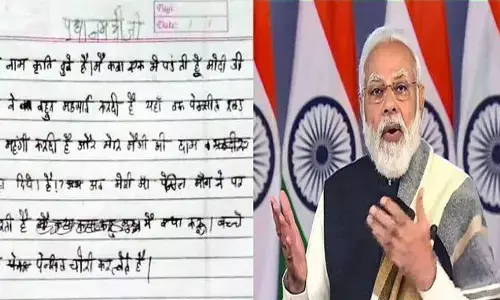 प्रधानमंत्री जी
Page:
Date:
नाम कृति दुबे है। मैं कक्षा एक में पढ़ती हूँ मोदी जी
ने बहुत महगाई करदी है यहाँ तक पेन्सील रबड़
महंगी करदी है और मेरे मैगी की दाम
दिये। है। अब मेरी मां पेंसिल मांगने पर
है मैं क्या करू। बच्चे
पेन्सिल चोरी कर लेते है।